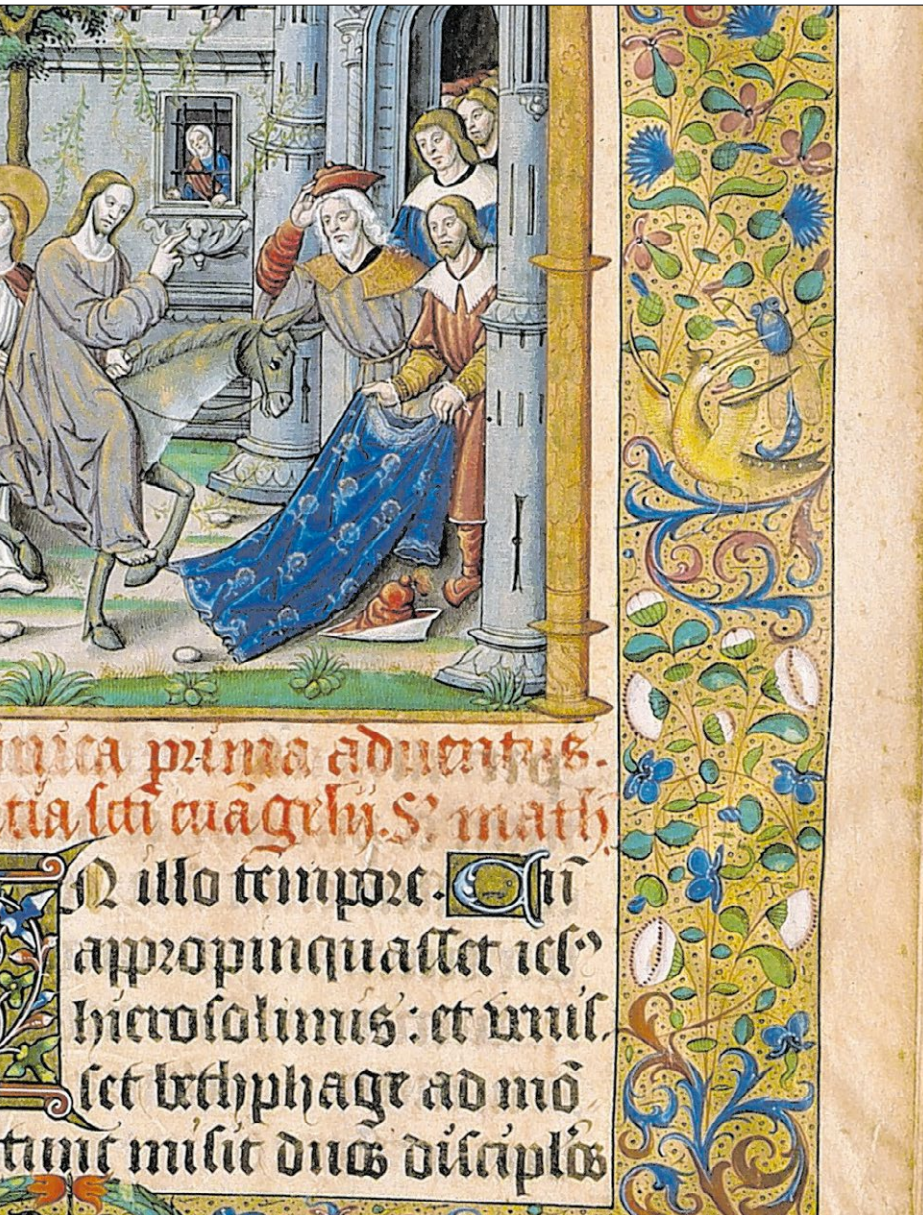 nica prima aduentus.
tia scī euāgelij. Sˀ math
N illo tempore. Cū
appropinquasset iesꝰ
hierosolimis: et venis.
set bethphage ad mō
tunc misit duos disciplōs